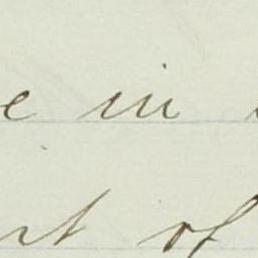 e in
rt of